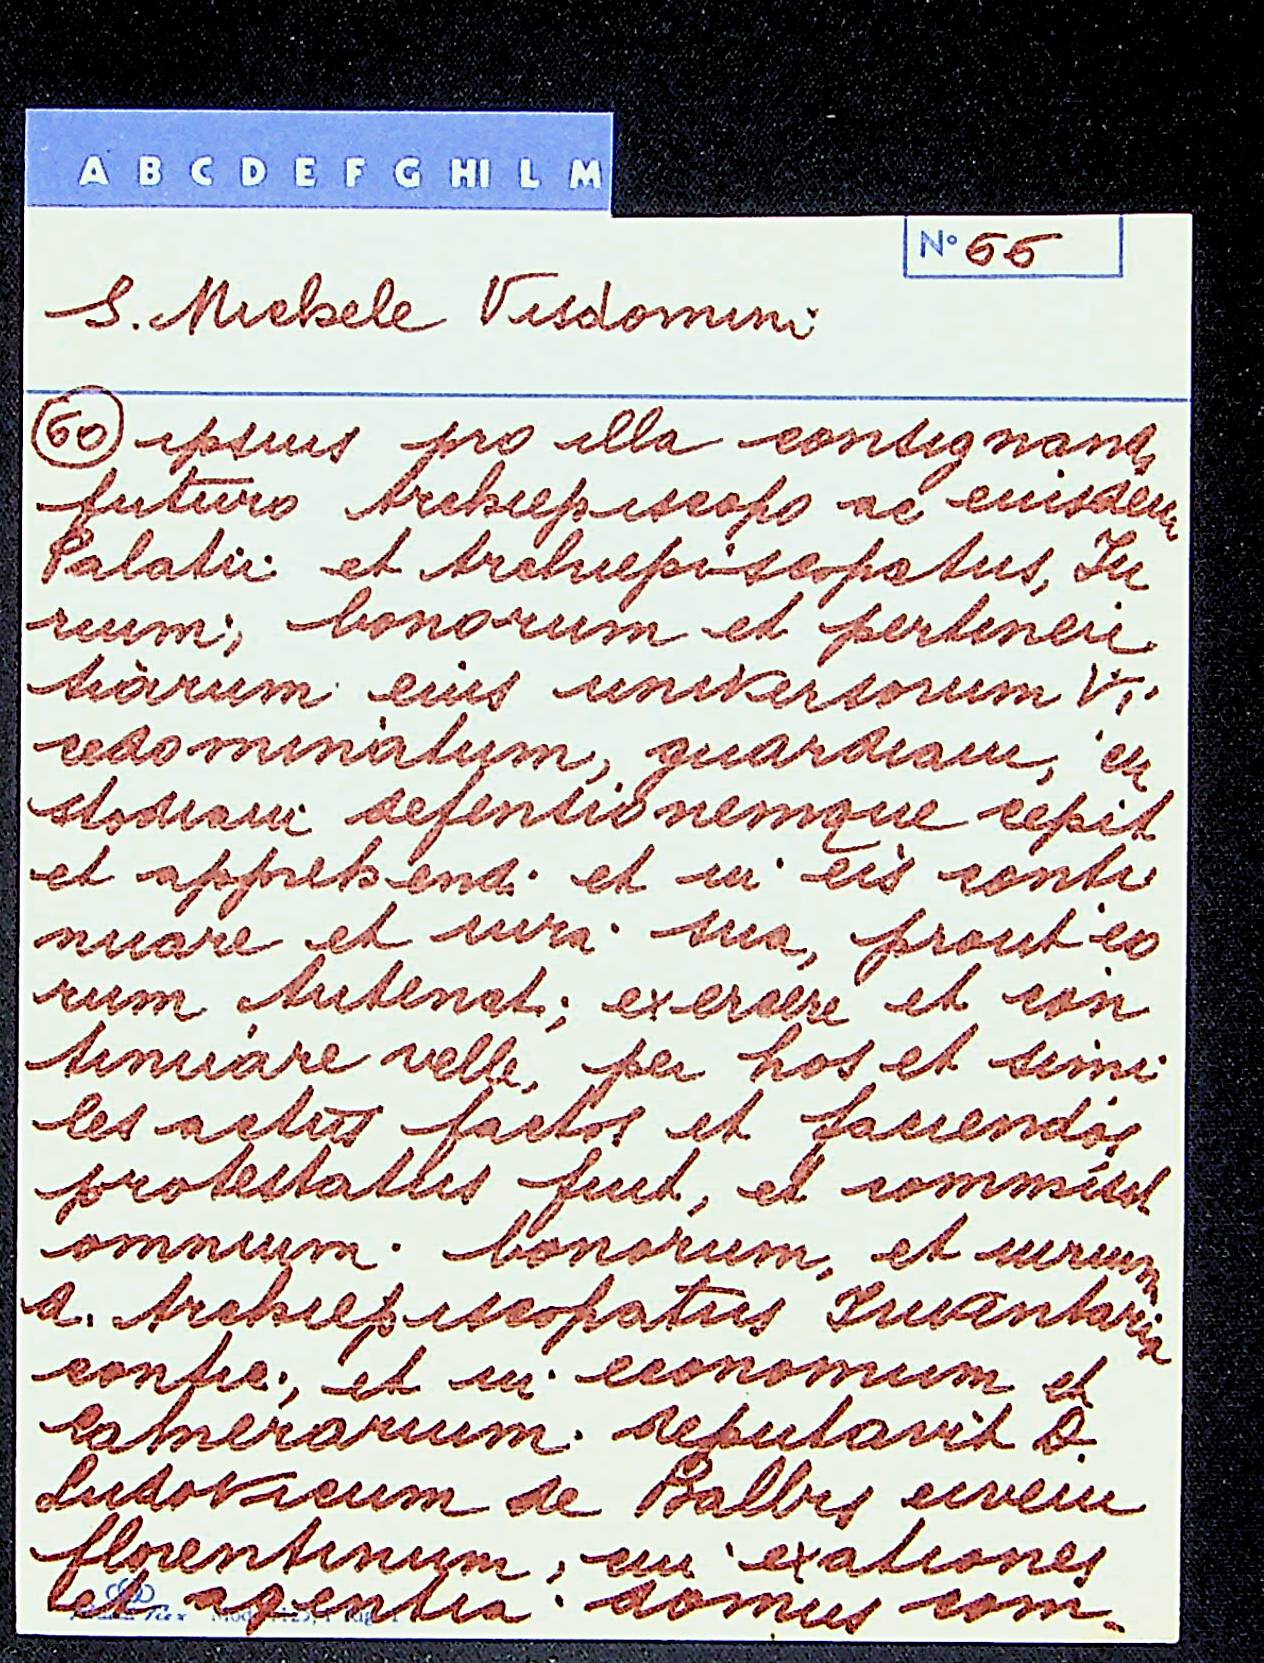 A B C D E F G HI L M
N° 66
S. Michele Visdomini
(60) ipsius pro illa consignand
futuro Archiepiscopo ac euisdem
Palatii et Archiepiscopatus, Iu
rium, bonorum et pertinen
tiarum eius universorum Vi
cedominatum, guardiam, cu
stodiam defensionemque cepit
et apprehend. et in eis conti
nuare et iura sua, prout eo
rum tutenat; exercere et con
tinuare velle, per hos et simi
les actus factos et faciendos
protestatus fuit, et commisit
omnium bonorum, et iurium
d. Archiepiscopatus Inventaria
confic., et in economum et
Camerarium deputavit D.
Ludovicum de Balbis civem
florentinum, cui exationes
et agentia domus com-